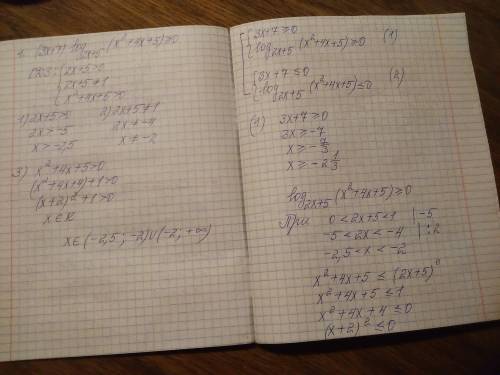 1. (3x+7) log₂ₓ₊₅ (x²+4x+5) ≥ 0
{2x+5>0
{2x+5≠1
{x²+4x+5>0
1) 2x+5>0 2) 2x+5≠1
2x>-5 2x≠-4
x>-2,5 x≠-2
3) x²+4x+5>0
(x²+4x+4)+1>0
(x+2)²+1>0
x∈R
x∈(-2,5; -2)∪(-2; +∞)
[{3x+7≥0
{log₂ₓ₊₅ (x²+4x+5)≥0 (1)
{3x+7≤0
{log₂ₓ₊₅ (x²+4x+5)≤0 (2)
(1) 3x+7≥0
3x≥-7
x≥-7/3
x≥-2 1/3
log₂ₓ₊₅ (x²+4x+5)≥0
При 0<2x+5<1 |-5
-5<2x<-4 |:2
-2,5<x<-2
x²+4x+5≤(2x+5)⁰
x²+4x+5≤1
x²+4x+4≤0
(x+2)²≤0